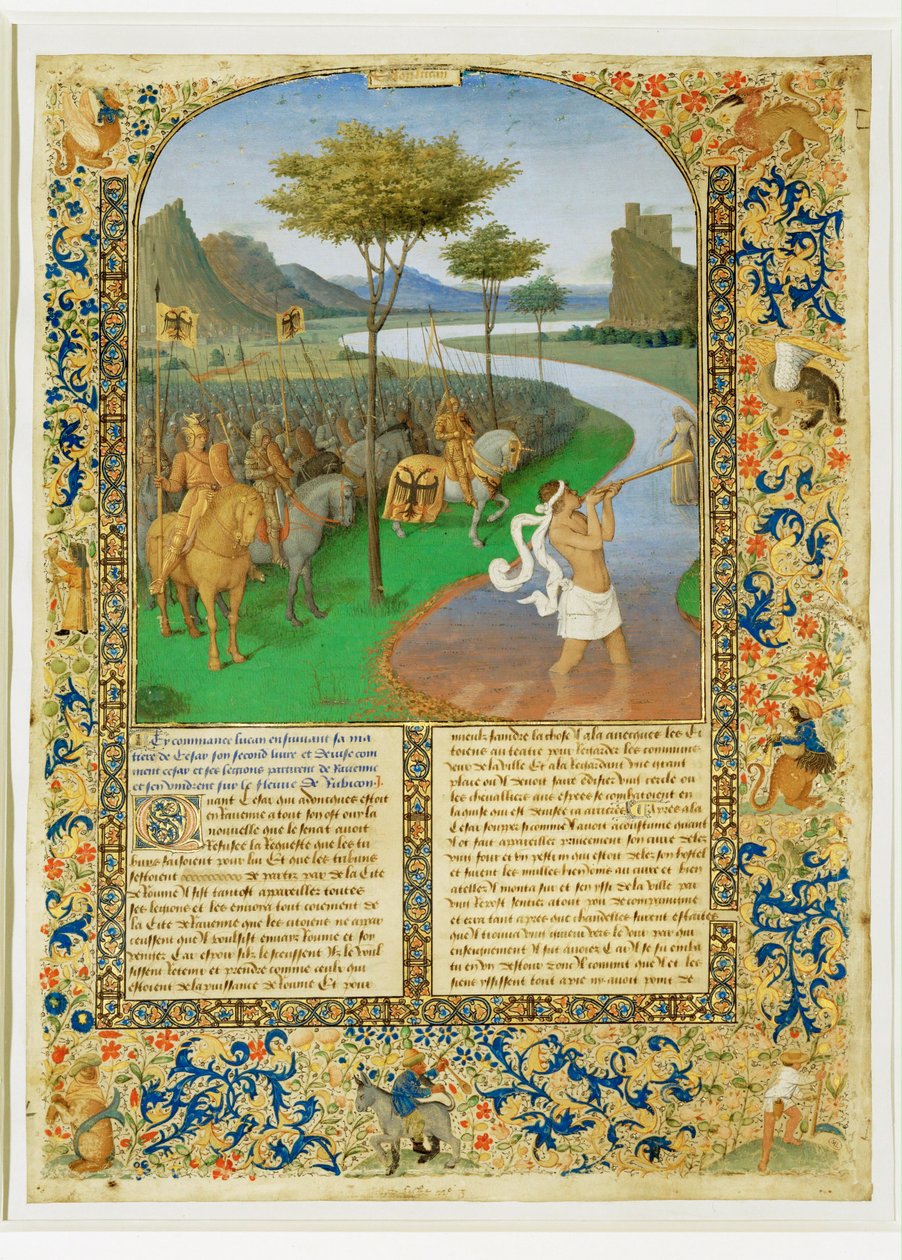 Cy commance lucan ensuivant sa ma
tiere de Cesar son second livre et devise com
ment cesar et ses legions partirent de Ravenne
et sen vindrent sur le fleuve de Rubicon .j.
Quant Cesar qui adonques estoit
en ravenne a tout son ost ouy la
nouvelle que le senat avoit
Refusee la Requeste que les tri
buns faisoient pour lui Et que les tribuns
sestoient de partiz par de la Cite
de Romme Il fist tantost appareillez toutes
ses legions et les envoia tout coiement de
la Cite de Ravenne que les citoiens ne appar
ceussent que Il voulsist envaïr Romme et son
Car espoir silz le sceussent Ilz le voul
sissent Retenir et prendre comme ceulx qui
estoient de la puissance de Romme Et pour
mieulx faindre la chose Il ala avecques les Ci
toiens au teatre pour Regarder les communs
Jeux de la ville Et ala Regardant une grant
place ou Il devoit faire edifier ung cercle ou
les chevalliers aux espees se combatoient en
la guise qui est devisee ca arriere Apres ala
Cesar souper si comme Il avoit acoustume quant
Il ot fait appareiller priveement son curre delez
ung four et un pestrin qui estoit delez son hostel
et furent les mulles bien au curre et bien
atellez Il monta sus et sen yssi de la ville par
ung Repost sentier atout pou de compaignie
et erra tant apres que chandelles furent estaintes
que Il trouva ung guieur vers le Jour par qui
enseignement Il fut avoiez Car Il se fu emba
tu en un destour donc Il convint que Il et les
siens yssissent tout a pie ny avoit point de